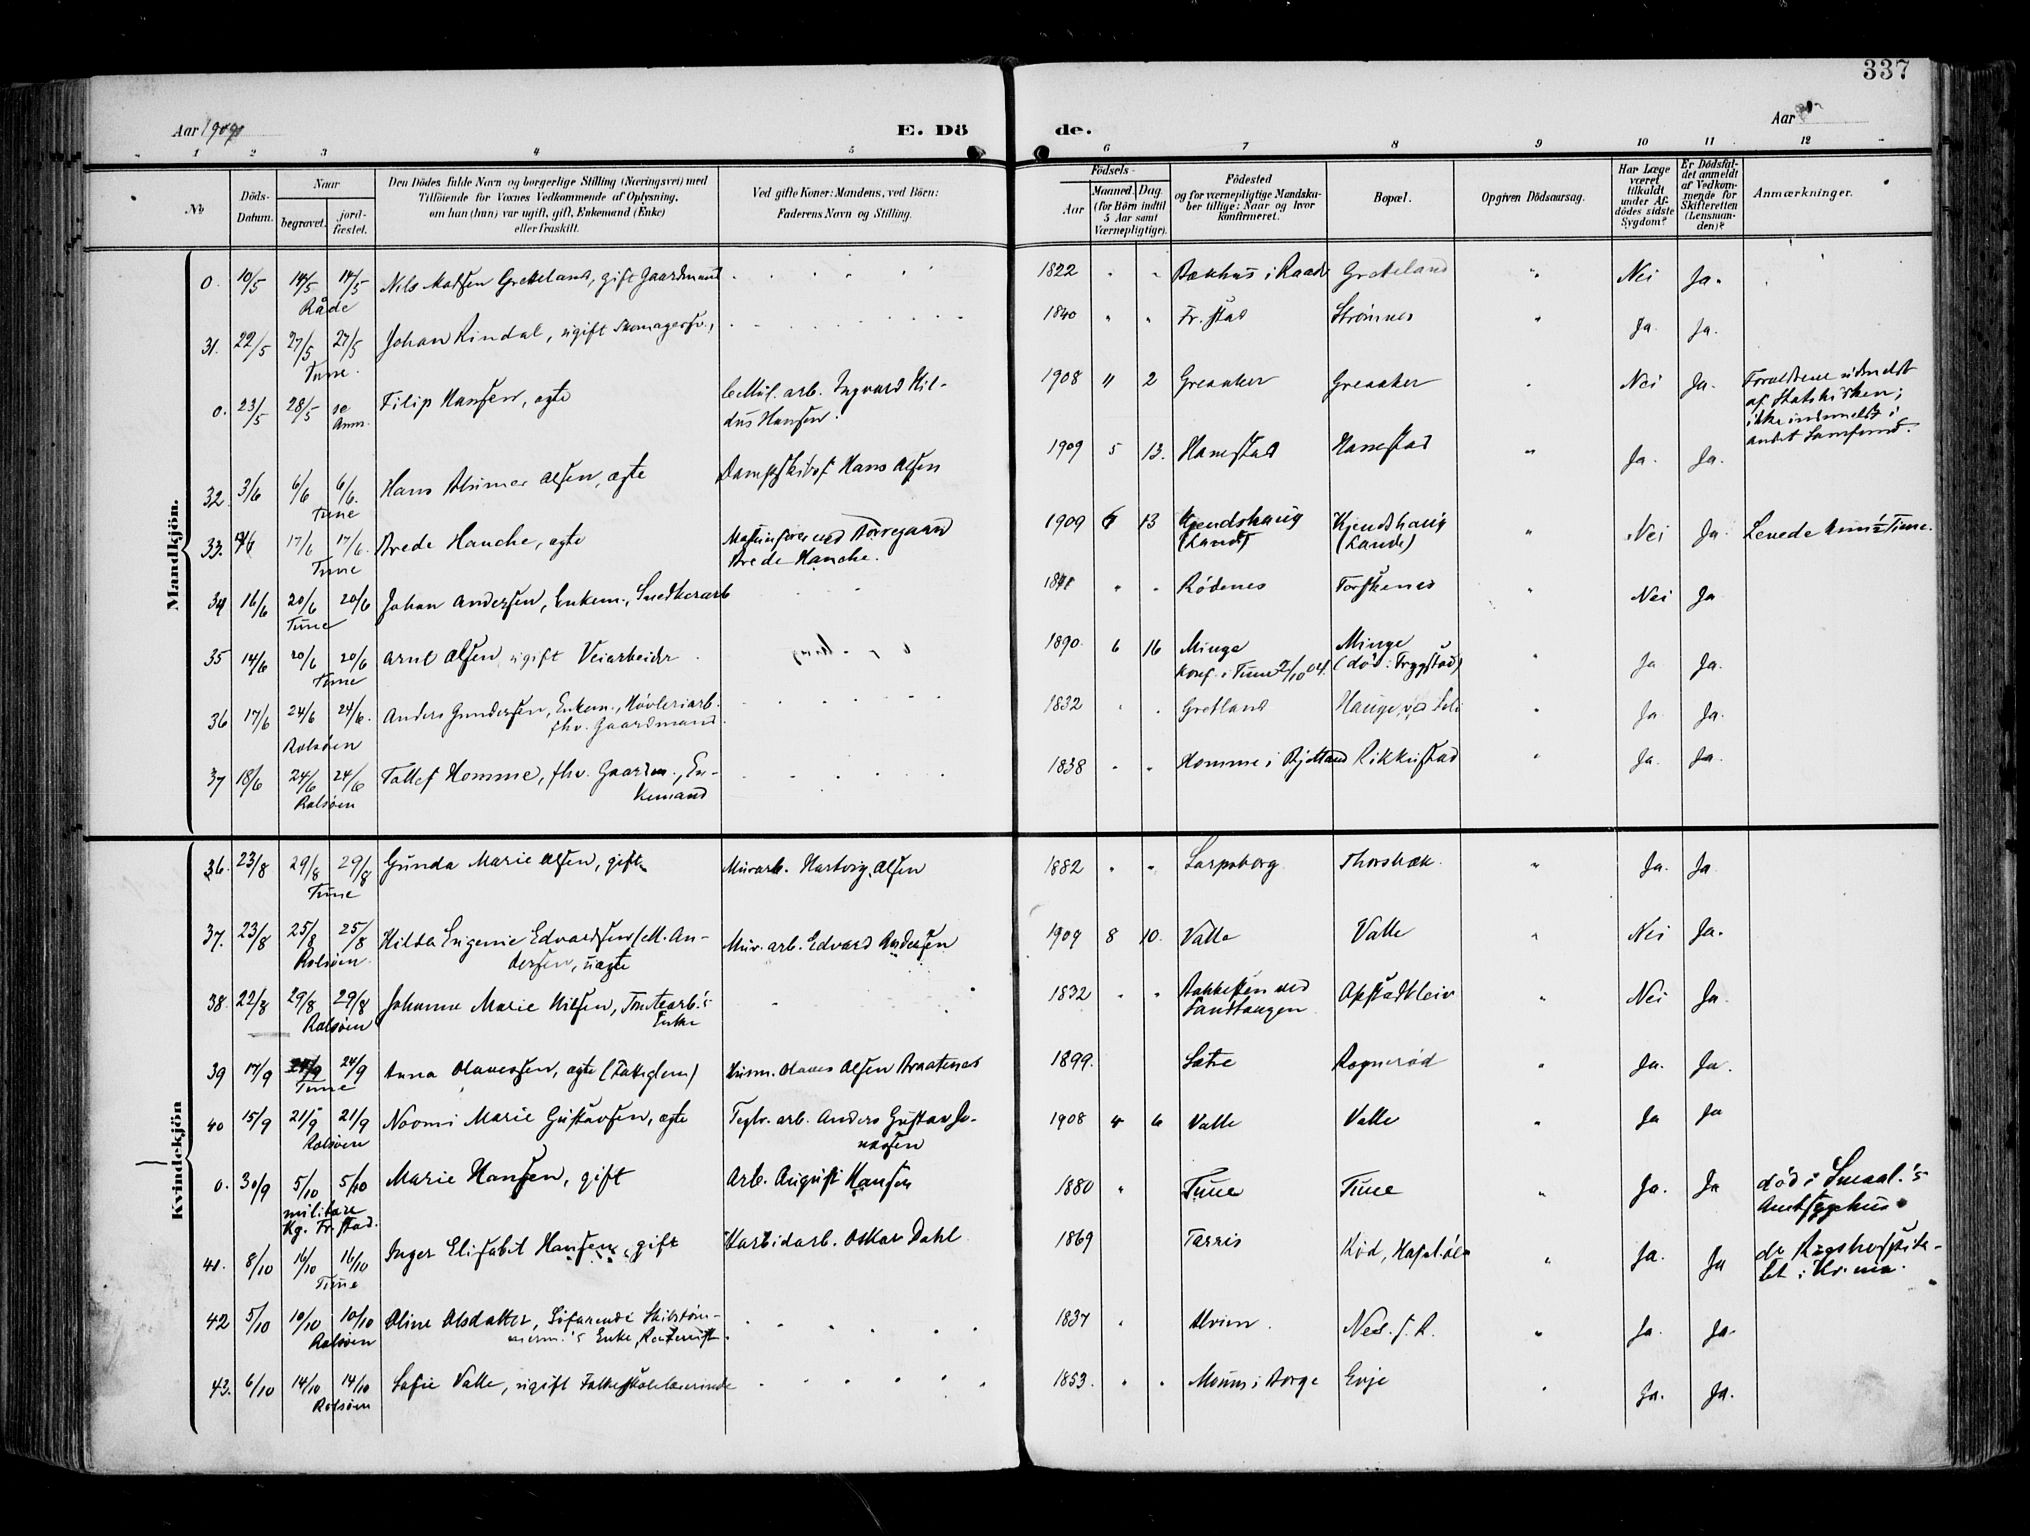 337
Aar 1909
E. Dö
de.
Aar
1 2 3 4 5 6 7 8 9 10 11 12
No
Döds-Datum.
Naar
begravet.
jord-fæstet.
Den Dödes fulde Navn og borgerlige Stilling (Næringsvei) med
Tilföiende for Voxnes Vedkommende af Oplysning,
om han (hun) var ugift, gift, Enkemand (Enke)
eller fraskilt.
Ved gifte Koner: Mandens, ved Börn:
Faderens Navn og Stilling.
Födsels-
Aar
Maaned. Dag.
(for Börn indtil
5 Aar samt
Værnepligtige).
Födested
og for værnepligtige Mandska-
ber tillige: Naar og hvor
konfirmeret.
Bopæl.
Opgiven Dödsaarsag.
Har Læge
været
tilkaldt
under Af-
dödes sidste
Sygdom?
Er Dödsfal-
det anmeldt
af Vedkom-
mende for
Skifteretten
(Lensman-
den)?
Anmærkninger.
Mandkjön.
0. 19/5 14/5 14/5 Nils Matsen Gretteland, gift Gaardmand 1822 " " i Raade Greteland " Nei Ja.
Råde
31. 22/5 27/5 27/5 Johan Rindal, ugift Skomagersv., 1840 " " Fr.stad Strömnes " Ja. Ja.
Tune.
0. 23/5 28/5 se Filip Hansen, ægte Cellul. arb. Ingvard Hil- 1908 11 2 Greaaker Greaaker Nei Ja. Forældrene udmeldt
Anm. dus Hansen. af Statskirken;
ikke indmeldt i
andet Samfund.
32 3/6 6/6 6/6. Hans Olsen, ægte Hans Olsen 1909 5 13. Hanestad Hanestad " Ja. Ja.
Tune
33. 17/6 17/6. Brede Hauche, ægte Maskinförer ved Borregaard 1909 6 13 Kjendshaug Kjendshaug " Nei Ja. Levede
Tune Brede Hauche. (Lande) (Lande)
34 16/6 20/6 20/6 Johan Andersen, Enkem., Snedkerarb " " Rödenes Torskenes " Nei Ja
Tune
35 14/6 20/6 20/6 Arnt Olsen, ugift Veiarbeider 1890. 6 16 Minge Minge " Ja Ja.
Tune Konf. i Tune 2/10 04. (död i Trygstad)
36 17/6 24/6 24/6. Anders Gundersen, Enkem., Hövleriarb. 1832 " " Gretland Hauge, ved Soli " Ja. Ja.
Rolsöen fhv. Gaardmand.
37 18/6 24/6 24/6 Tallef Homme, fhv. Gaardm., En- 1838 " " Homme i Bjelland Rikkestad " Ja. Ja.
Rolsöen kemand
Kvindekjön
36. 23/8 29/8 29/8 Gunda Marie Olsen, gift Murarb. Hartvig Olsen 1882 " " Sarpsborg Thorsbæk. " Ja. Ja
Tune
37. 23/8 25/8 25/8 Hilda Eugenie Edvardsen (M. An- Mur. arb. Edvard Andersen 1909 8 10. Valle Valle " Nei Ja.
Rolsöen. dersen, uægte
38. 22/8 29/8 29/8 Johanne Marie Nilsen, Tomtearb.'s 1832 " " Bakkesten ved Opstadkleiv " Nei Ja.
Rolsöen Enke Sandtangen
39 17/9 24/9 24/9 Anna Olavesen, ægte Husm. Olaves Olsen Braatenes 1899. Sætre Rognerød " Ja. Ja.
Tune
40 15/9 21/9 21/9 Noomi Marie Gustavsen, ægte Teglv. arb. Anders Gustav Jo- 1908 4 6 Valle Valle " Ja Ja
Rolsöen nassen
0. 30/9 5/10 5/10 Marie Hansen, gift Arb. August Hansen 1880 " Tune Tune " Ja. Ja död i Smaal.'s
militære Amtssygehus
Kg. Fr.stad.
41. 8/10 16/10 16/10 Inger Elisabet Hansen, gift Karbidarb. Oskar Dahl. 1869 Tarris Röd, " Ja. Ja do Rigshospita-
Tune let i Kr.nia.
42 5/10 10/10 10/10 Oline Olsdatter, 1837 " Alvim. Nes. f. R. " Ja. Ja.
Rolsöen 's Enke,
43. 6/10 14/10 14/10 Sofie Valle, ugift Folkeskolelærerinde 1853. " " Moum i Borge Evje " Ja. Ja.
Rolsöen